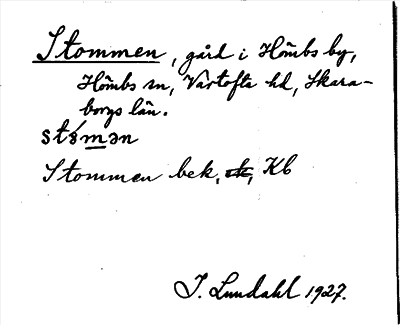 Stommen, gård i Hömbs by,
Hömbs sn, Vartofta hd, Skara-
borgs län.
Stommen bek, Kb
I. Lundahl 1927.